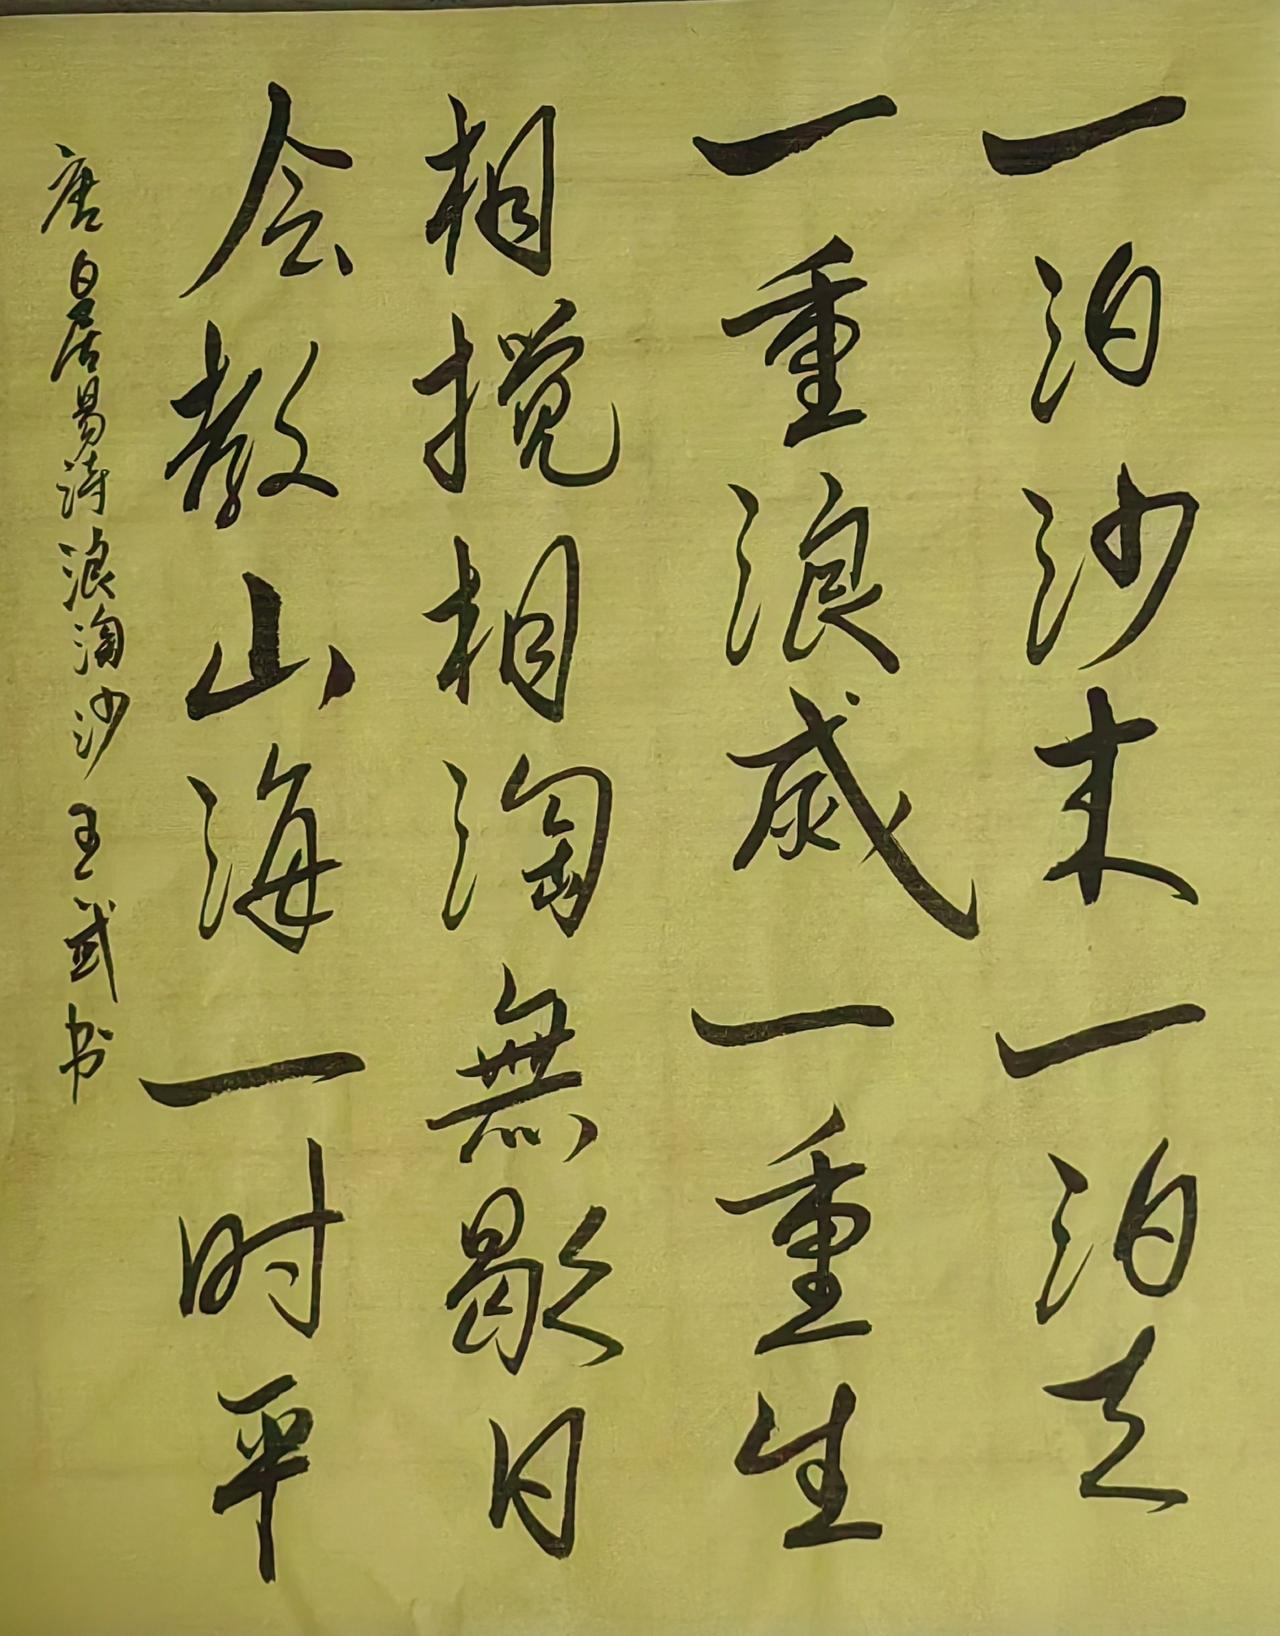 一泊沙来一泊去
一重浪烕一重生
相搅相淘無歇日
会教山海一时平
唐白居易诗浪淘沙 王武书